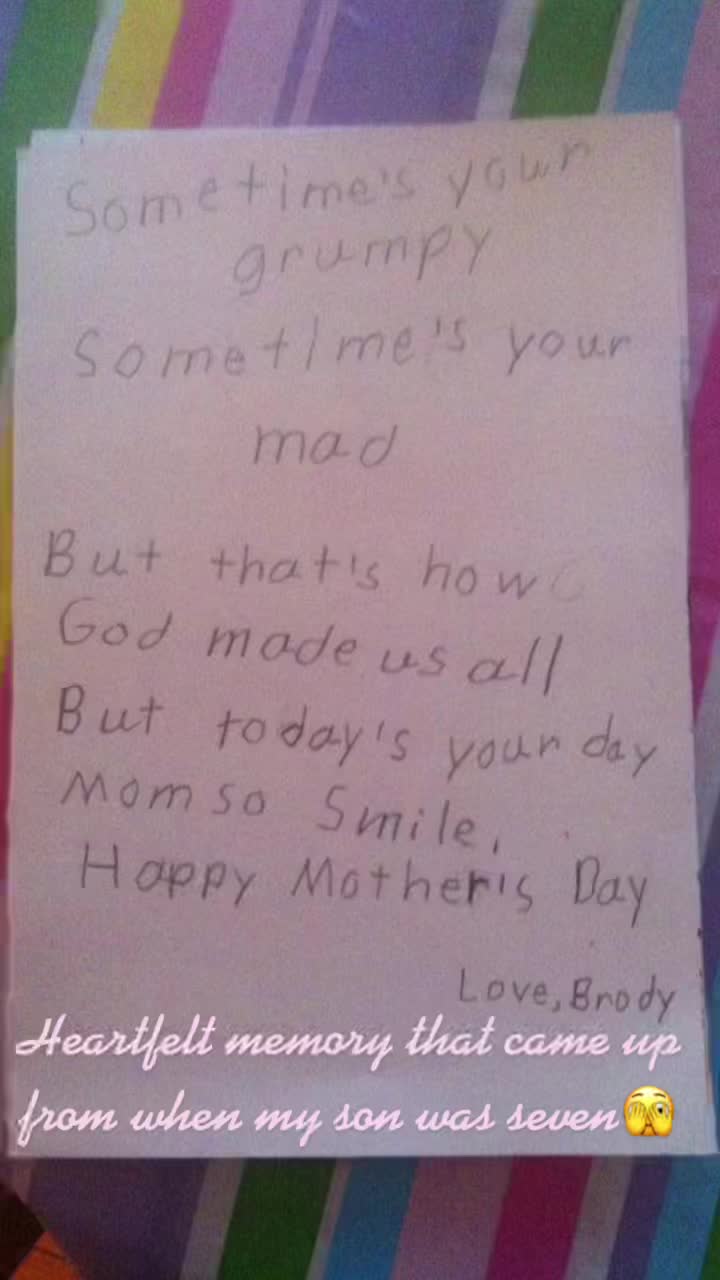 Sometime's your
grumpy
Sometime's your
mad
But that's how
God made us all
But today's your day
Mom so Smile,
Happy Mother's Day
Love, Brody
Heartfelt memory that came up
from when my son was seven🫣